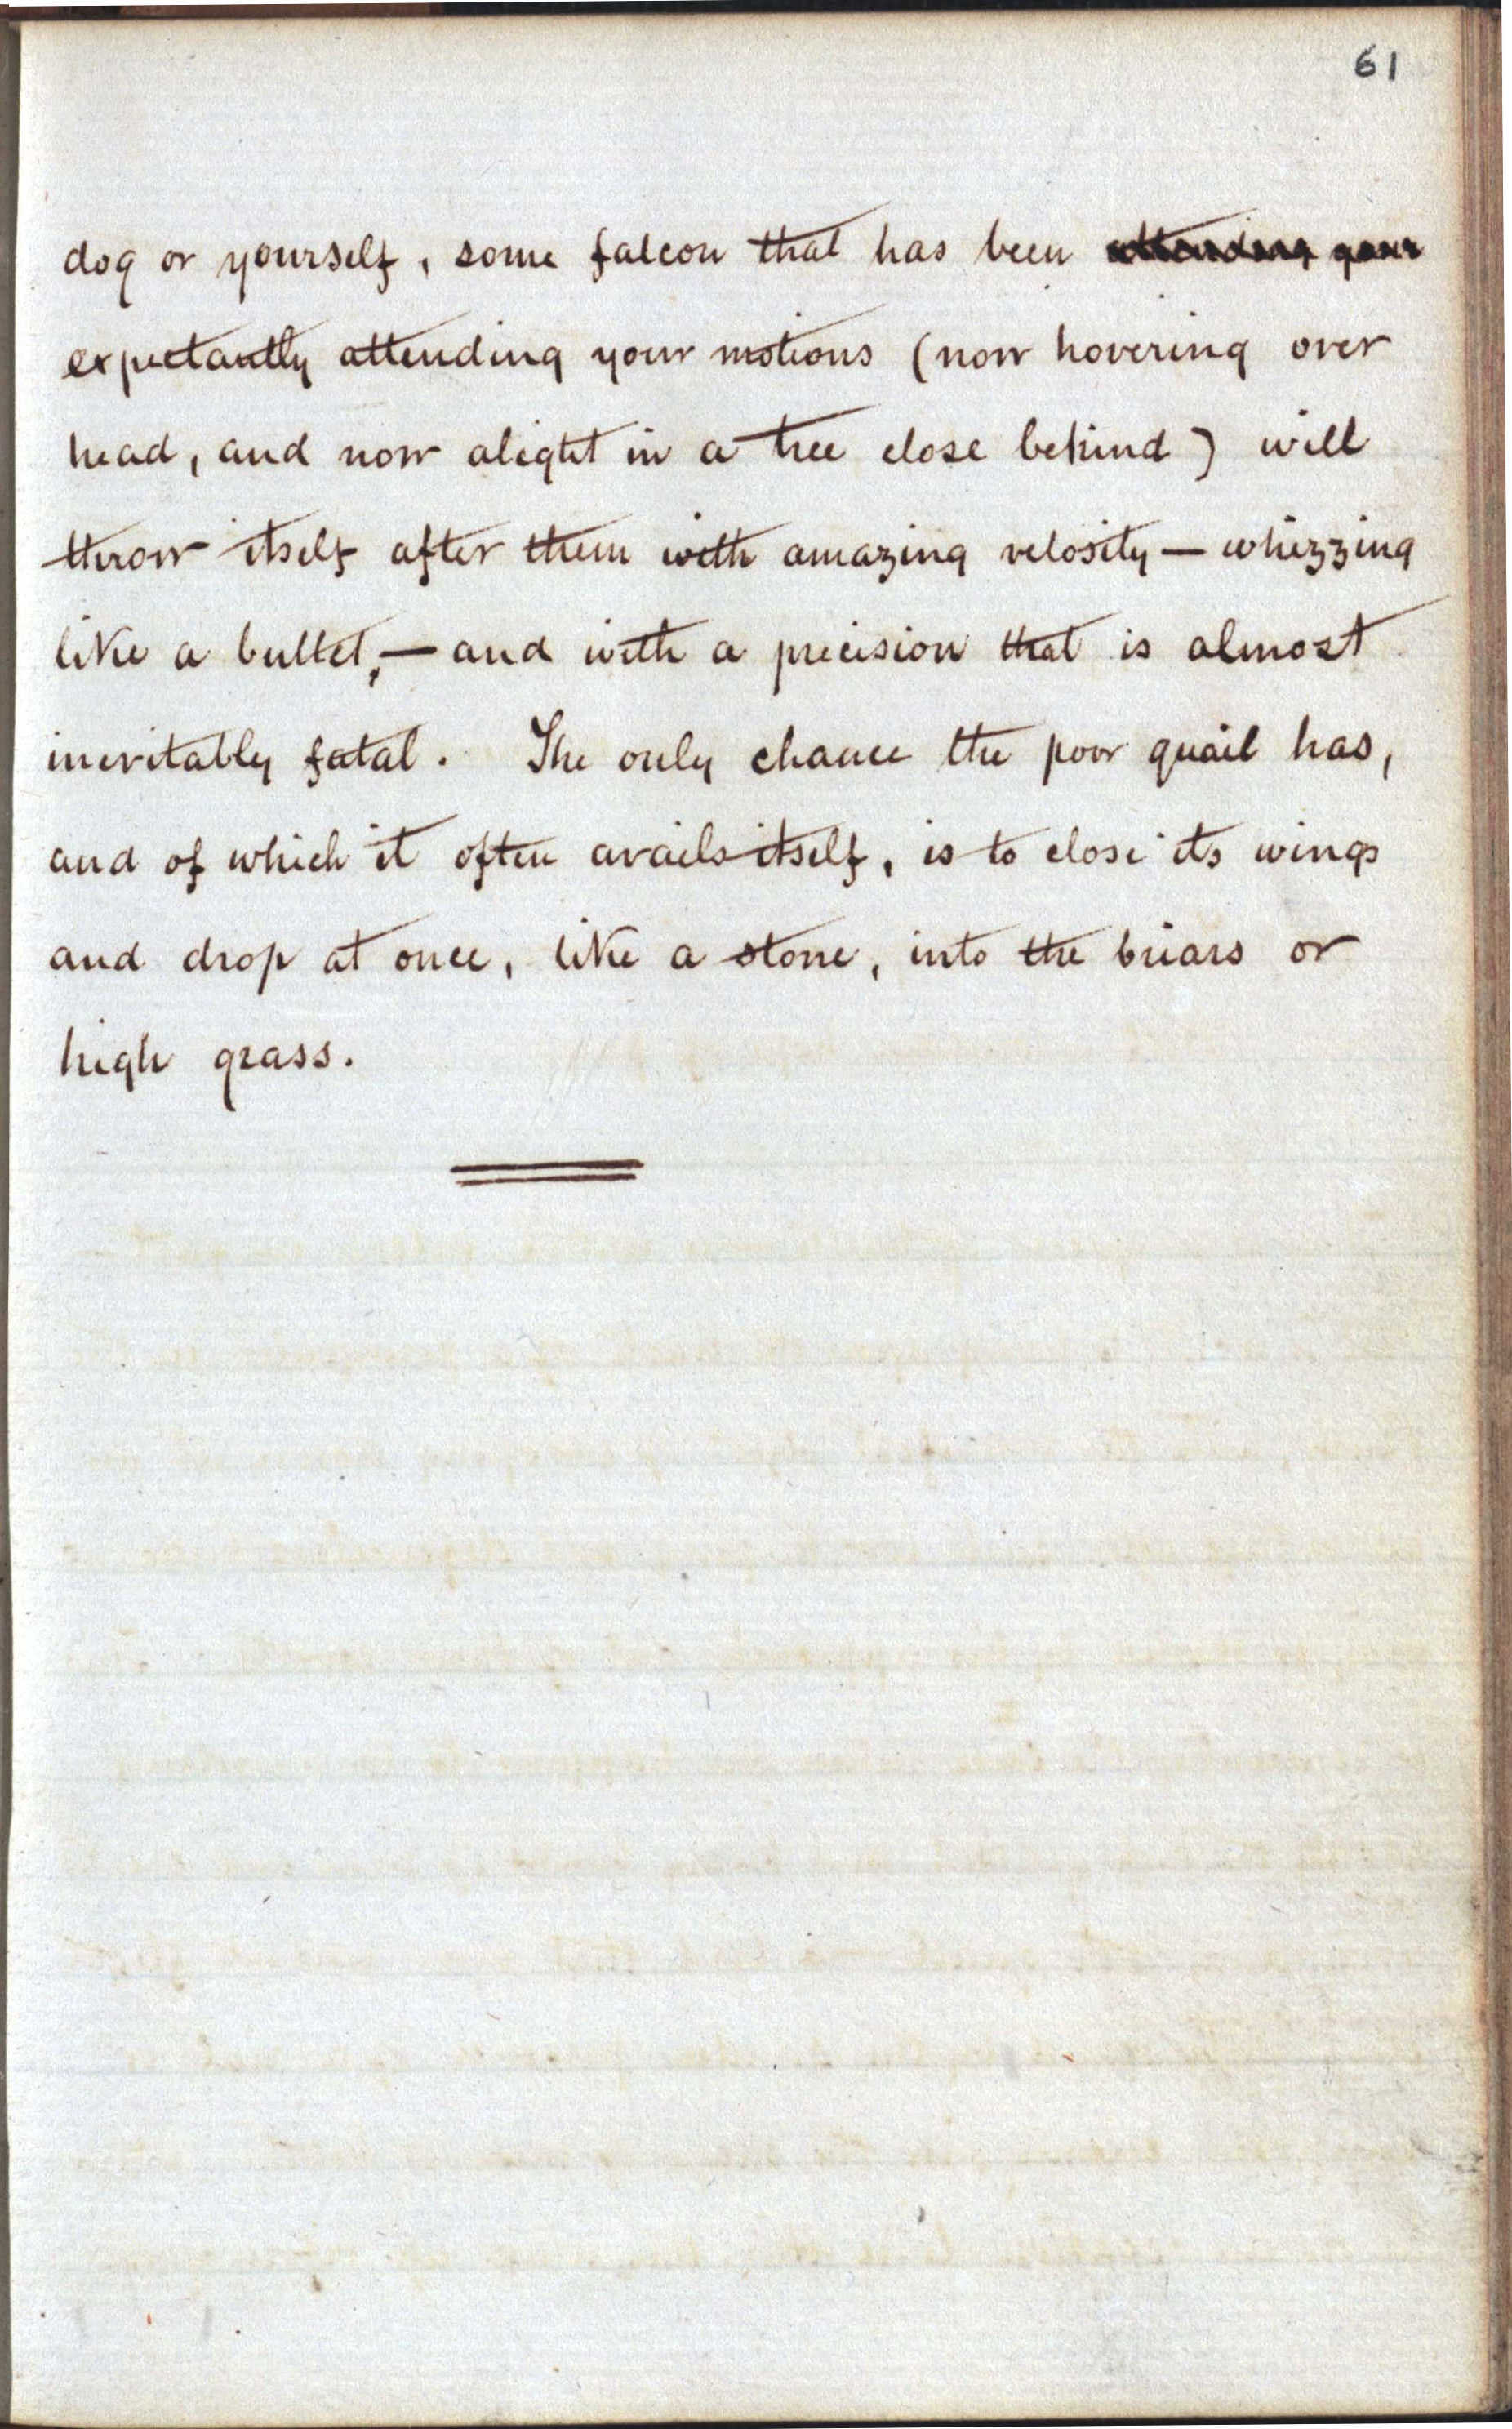 61
dog or yourself, some falcon that has been attending your
expectantly attending your motions (now hovering over
head, and now alight in a tree close behind) will
throw itself after them with amazing velosity — whizzing
like a bullet, — and with a precision that is almost
inevitably fatal. The only chance the poor quail has,
and of which it often avails itself, is to close its wings
and drop at once, like a stone, into the briars or
high grass.